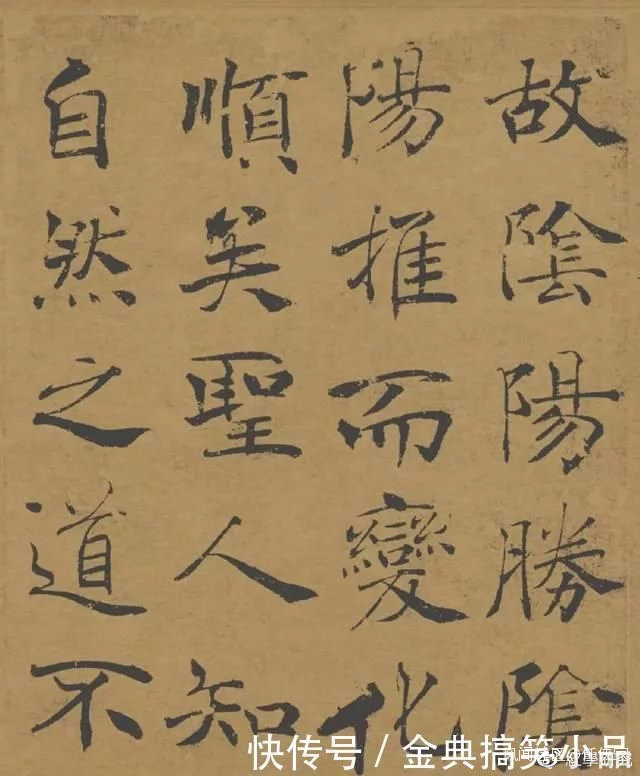 故陰陽勝陰
陽推而變化
順矣聖人知
自然之道不
快传号 / 金典搞笑小品